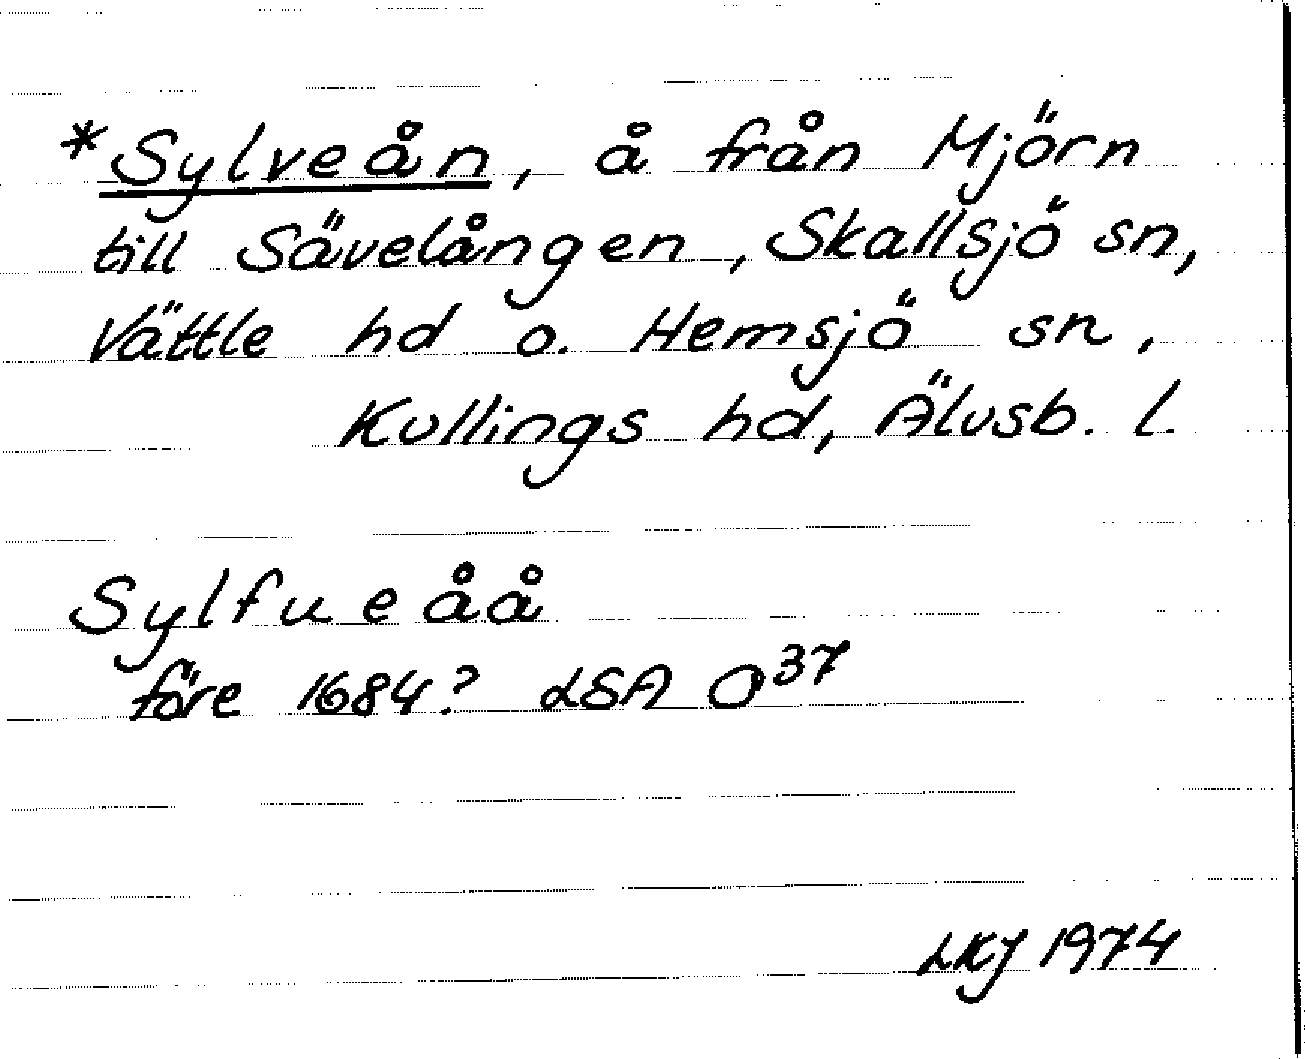 *Sylveån, å från Mjörn
till Sävelången, Skallsjö sn,
Vättle hd o. Hemsjö sn,
Kullings hd, Älvsb. l.
Sylfueåå
före 1684? LSA O³⁷
LKJ 1974